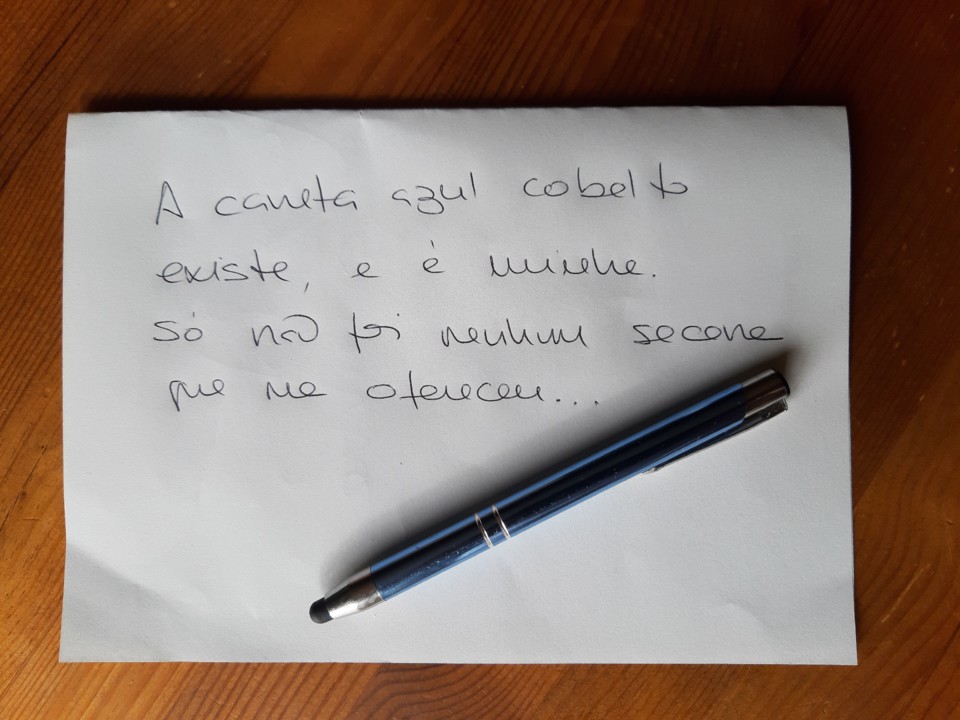 A caneta azul cobalto
existe, e é minha.
Só não foi nenhum sacana
que me ofereceu...